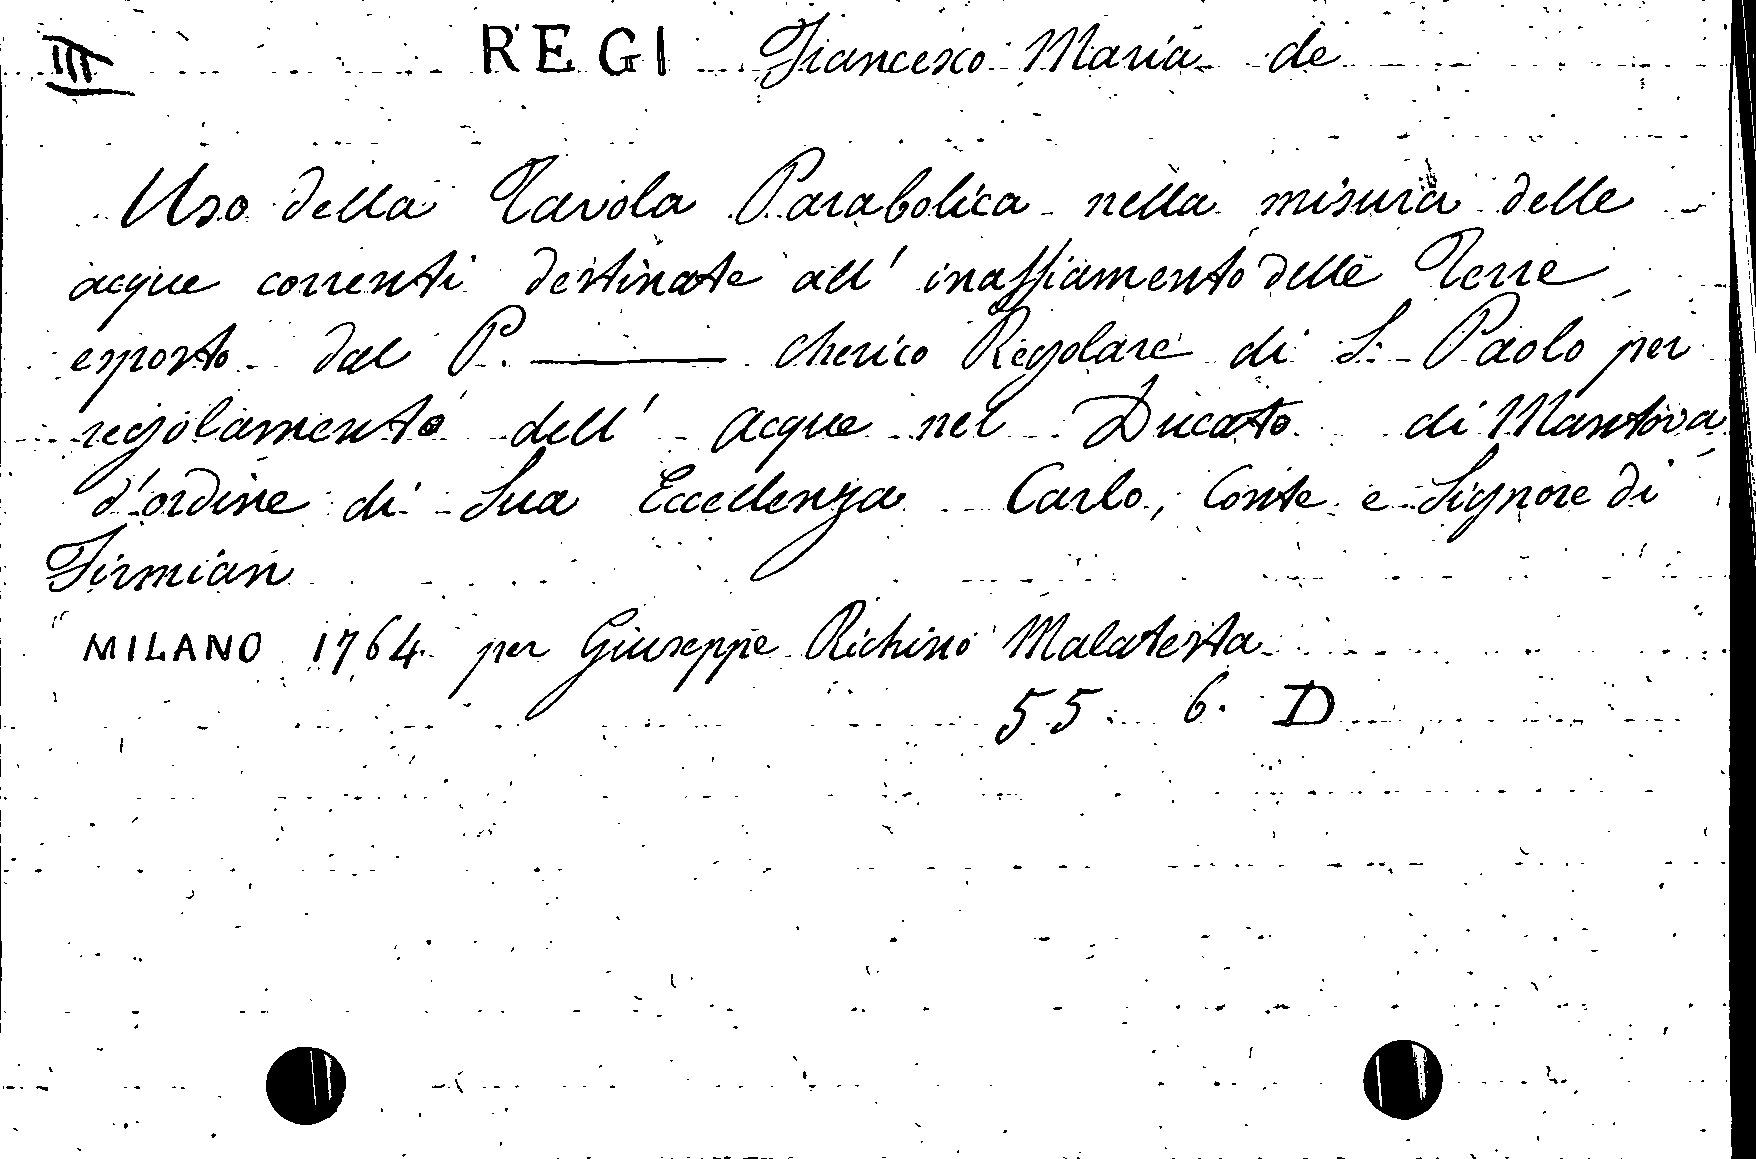 III REGI Francesco Maria de
Uso della Tavola Parabolica nella misura delle
acque correnti destinate all' inaffiamento delle Terre
esposto dal P. ——— Cherico Regolare di S. Paolo per
regolamento dell' Acque nel Ducato di Mantova
d'ordine di Sua Eccellenza Carlo, Conte e Signore di
Firmian
MILANO 1764 per Giuseppe Richino Malatesta
55. 6. D